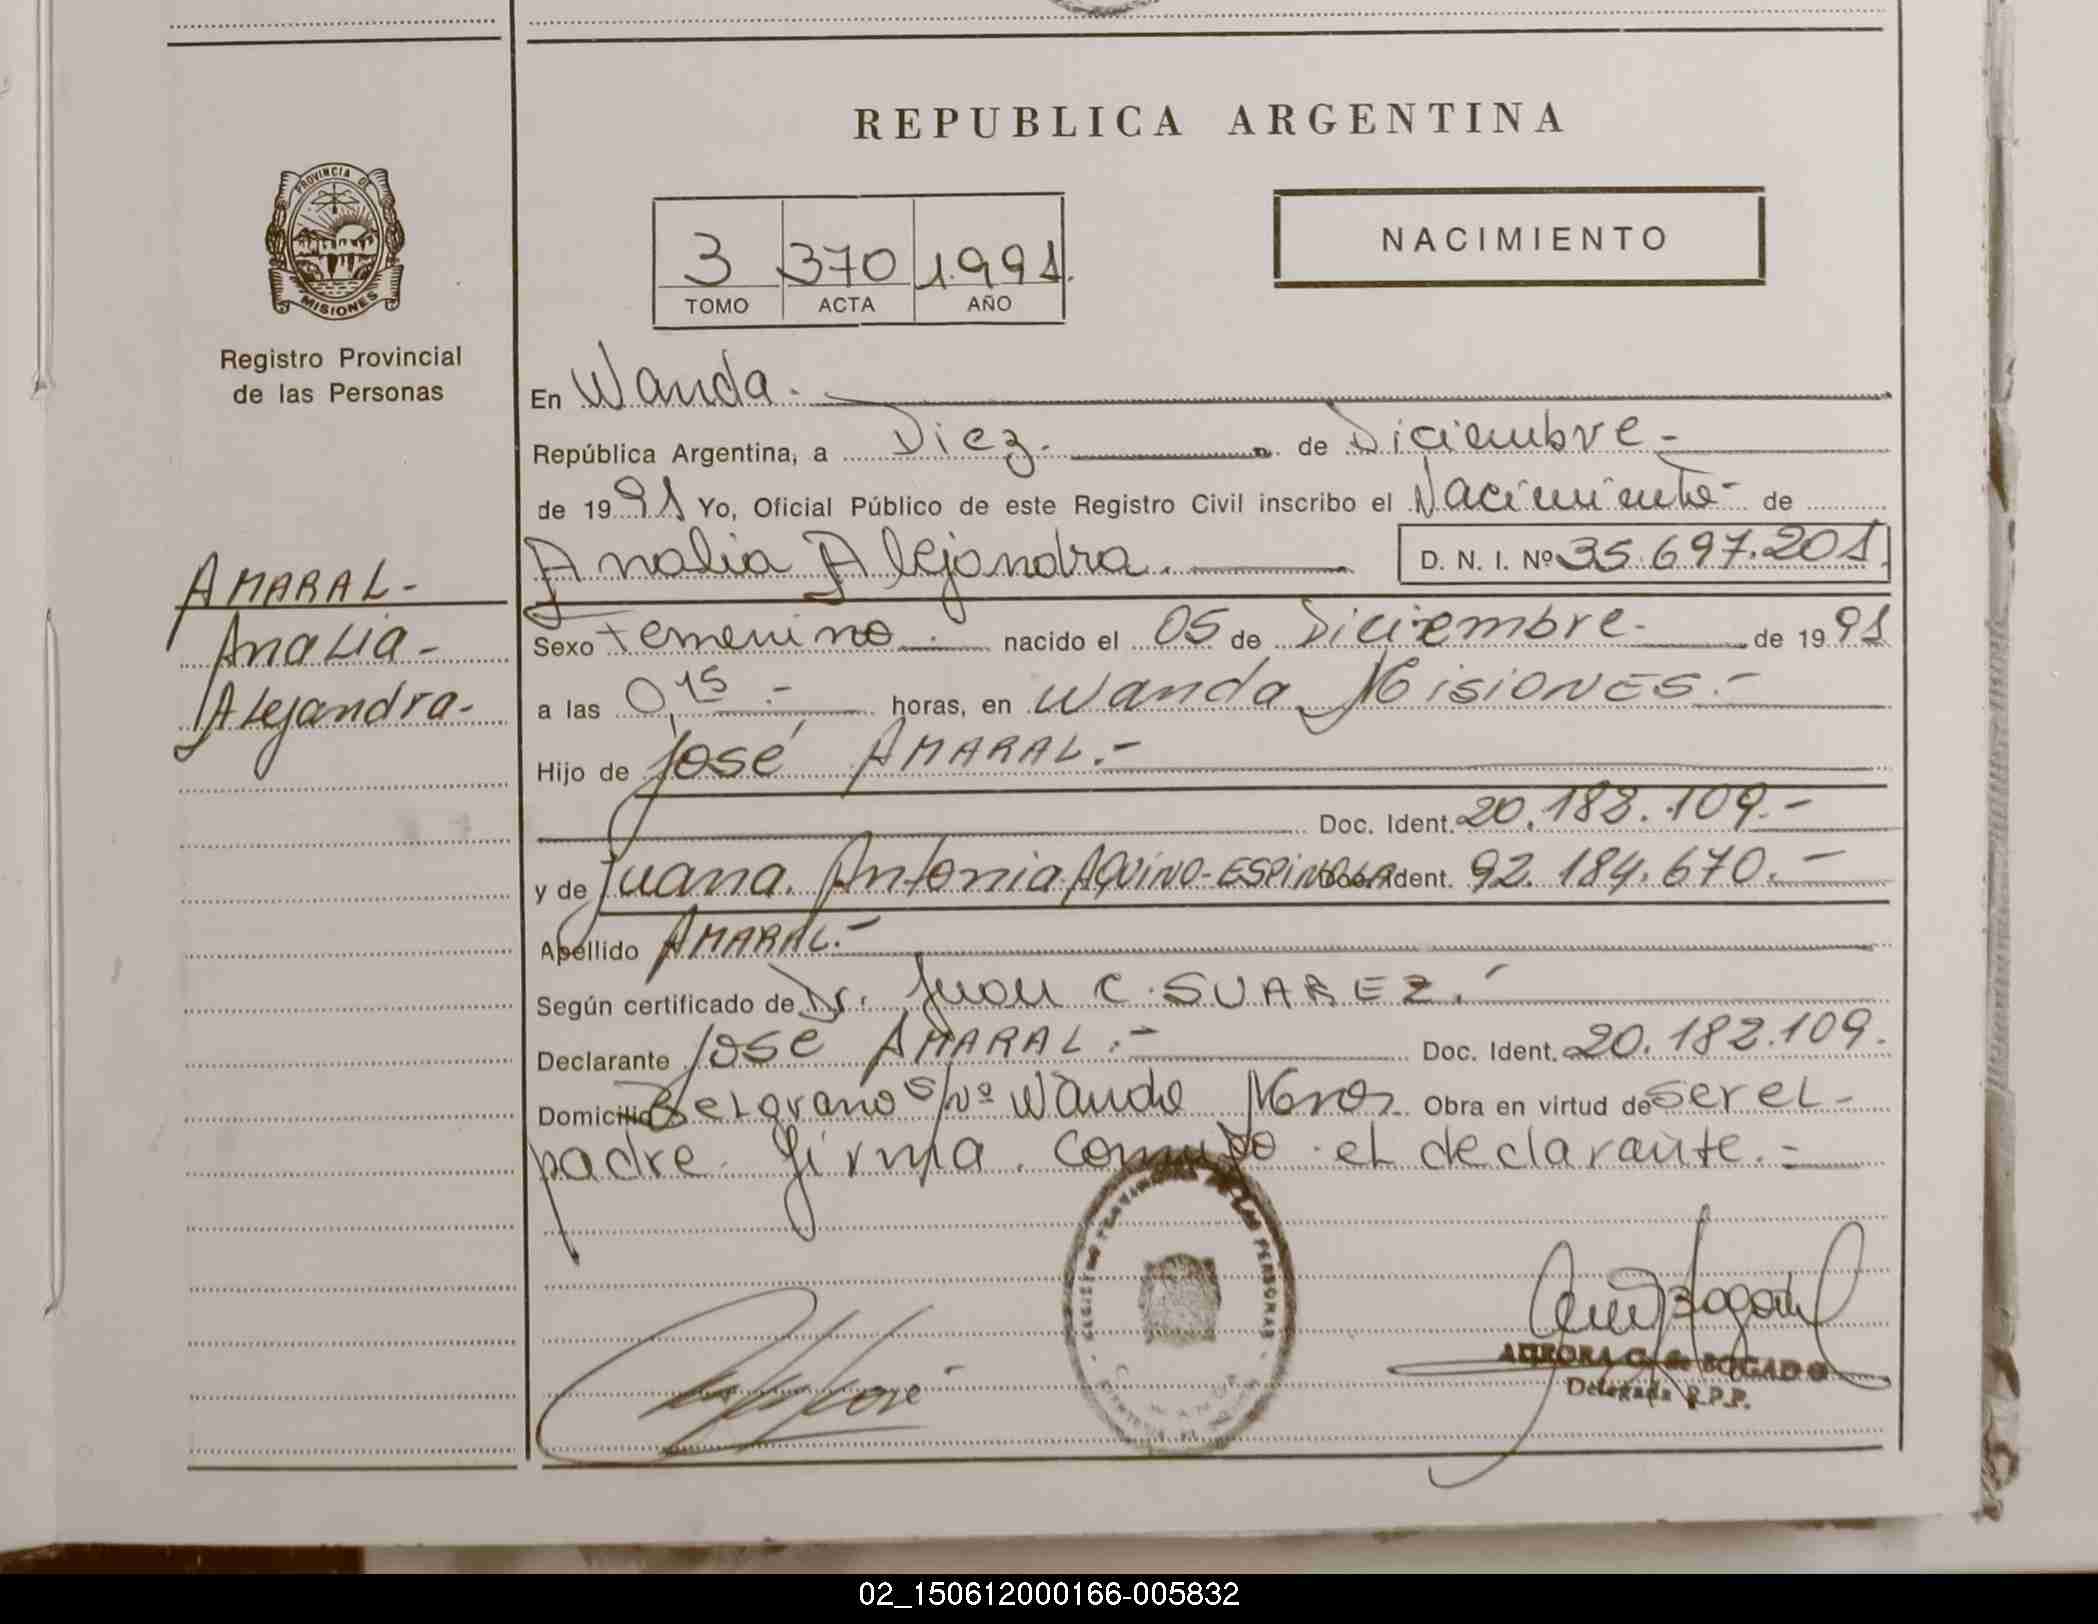 REPUBLICA ARGENTINA
PROVINCIA DE
MISIONES
Registro Provincial
de las Personas
3 370 1.991.
TOMO ACTA AÑO
NACIMIENTO
En Wanda.
República Argentina, a Diez. de Diciembre-
de 1991 Yo, Oficial Público de este Registro Civil inscribo el Nacimiento- de
Analia Alejandra. D. N. I. Nº 35.697.201.
AMARAL-
Analia-
Alejandra-
Sexo Femenino. nacido el 05 de Diciembre- de 1991
a las 0,15.- horas, en Wanda Misiones.-
Hijo de José AMARAL.-
Doc. Ident. 20.182.109.-
y de Juana Antonia AQUINO-ESPINOLA Doc. Ident. 92.184.670.-
Apellido AMARAL.-
Según certificado de Dr. Juan C. SUAREZ.-
Declarante José AMARAL.- Doc. Ident. 20.182.109.
Domicilio Belgrano s/nº Wanda Mnes. Obra en virtud de ser el-
padre firma conmigo el declarante.-
REGISTRO PROVINCIAL DE LAS PERSONAS
WANDA
AURORA G. de BOGADO
Delegada R.P.P.
02_150612000166-005832